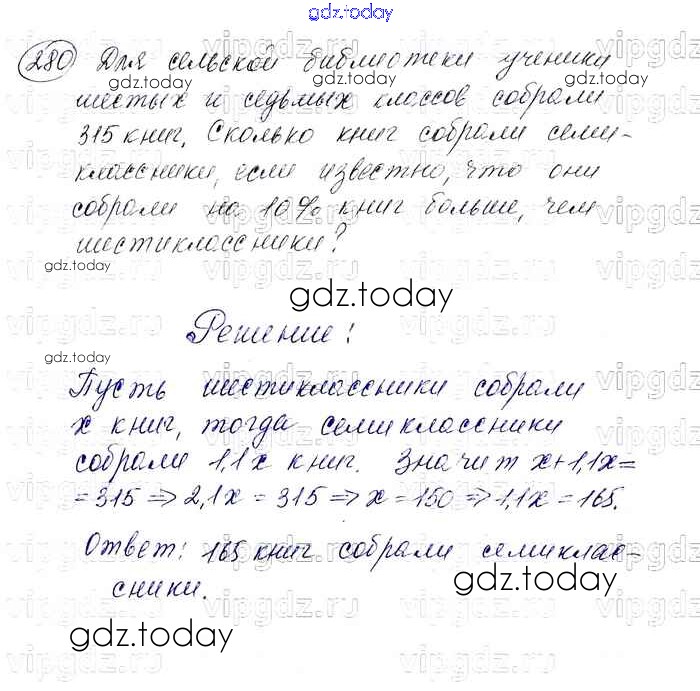 gdz.today
280 Для сельской библиотеки ученики
gdz.today gdz.today
шестых и седьмых классов собрали
315 книг. Сколько книг собрали семи-
классники, если известно, что они
собрали на 10% книг больше, чем
шестиклассники?
gdz.today
gdz.today
Решение:
gdz.today
Пусть шестиклассники собрали
x книг, тогда семиклассники
собрали 1,1x книг. Значит x+1,1x=
=315 ⇒ 2,1x = 315 ⇒ x = 150 ⇒ 1,1x = 165.
Ответ: 165 книг собрали семиклас-
сники.
gdz.today
gdz.today